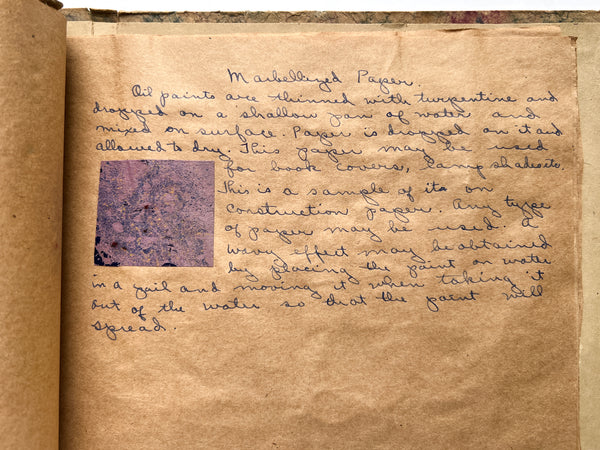 Marbelleyed Paper.
Oil paints are thinned with turpentine and
dropped on a shallow pan of water and
mixed on surface. Paper is dropped on it and
allowed to dry. This paper may be used
for book covers, lampshades etc.
This is a sample of it on
construction paper. Any type
of paper may be used. A
wavy effect may be obtained
by placing the paint on water
in a pail and moving it when taking it
out of the water so that the paint will
spread.